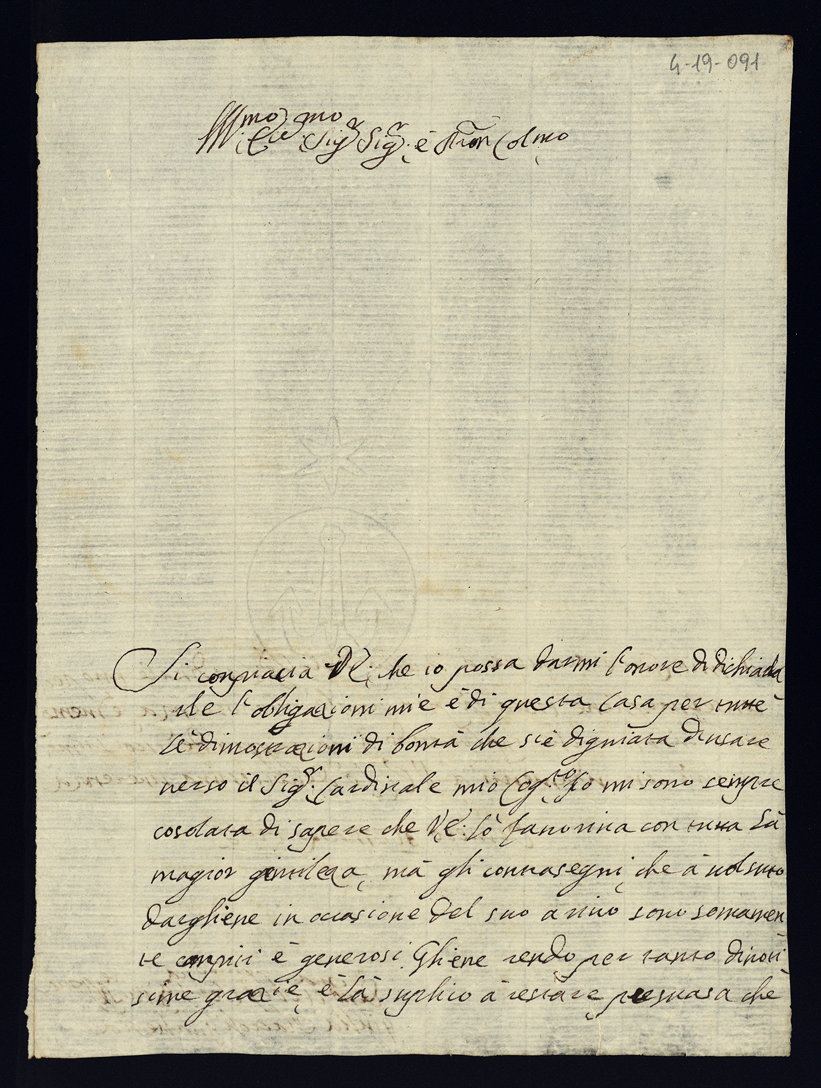 4-19-091
Ill.mo
Ecc.mo Sig.r Sig.r è Pron Colmo
Si conpiacia V.E. che io possa darmi l'onore di dichiada
rle l'obligazioni mie è di questa Casa per tutte
lè dimostrazioni di bontà che siè digniata di usare
verso il Sig.r Cardinale mio Cog.to Io mi sono sempre
cosolata di sapere che V.E. lò favoriva con tutta là
magior gentileza, mà gli contrasegni che à volsuto
darghiene in ocasione del suo arivo sono somamen
te conpiti è generosi. Ghiene rendo per tanto divoti
sime grazie, è là suplico à restare persuasa che